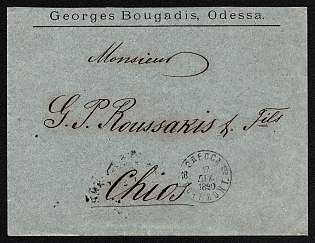 Georges Bougadis, Odessa.
Monsieur
G. P. Roussakis & Fils
ОДЕССА
18 1890
Chios